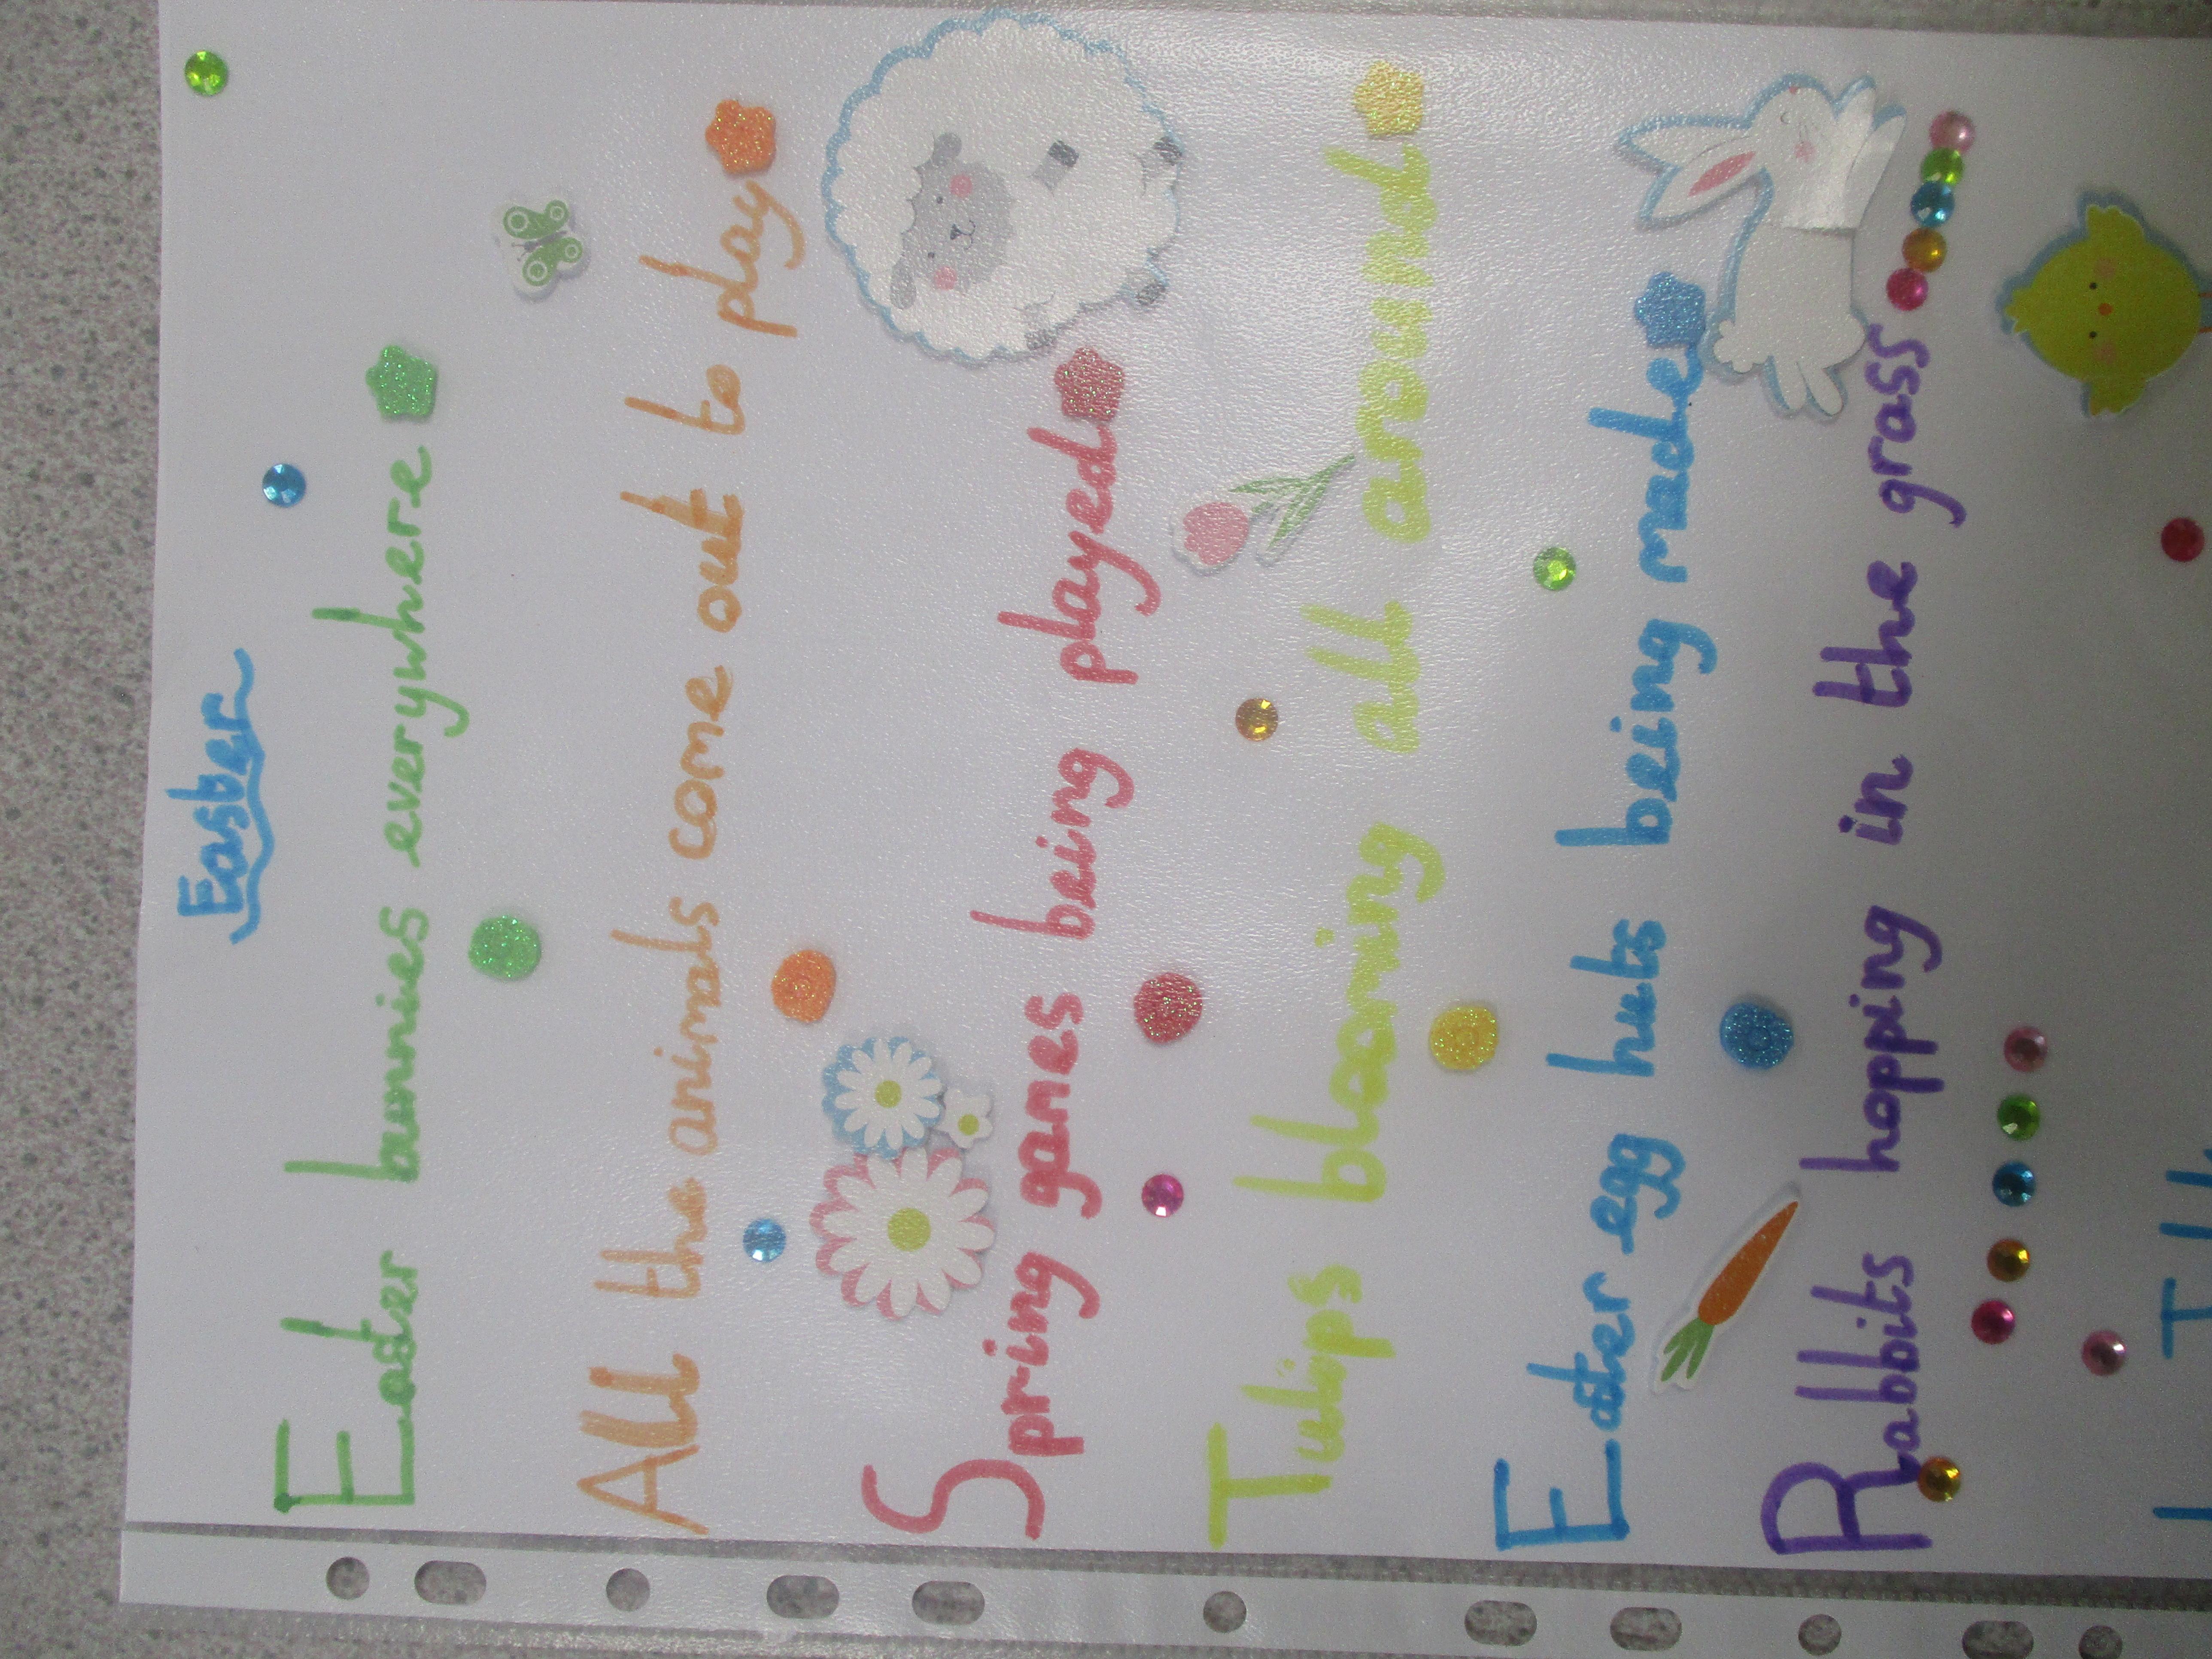 Easter
Easter bunnies everywhere
All the animals come out to play
Spring games being played
Tulips blooming all around
Easter egg huts being made
Rabbits hopping in the grass